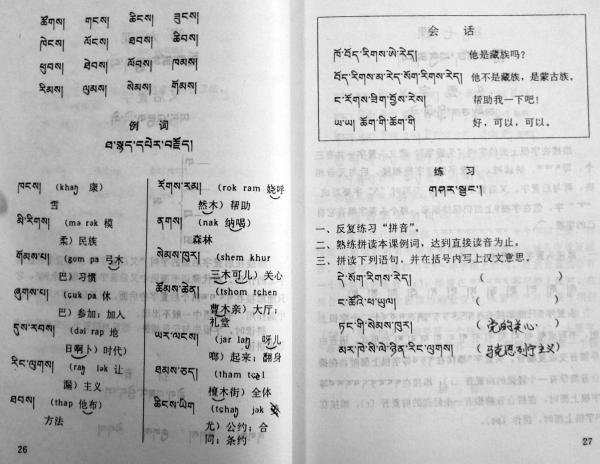 ཚོགས། གངས། ཚངས། ཟུངས།
ཁེངས། ལོངས། ཐབས། ཆིབས།
ཕུབས། ཐེབས། ལོབས། ཁམས།
རིམས། ལུམས། སེམས། གོམས།
例 词
ཐ་སྙད་དཔེར་བརྗོད།
ཁངས། (khaŋ 康)
雪
མི་རིགས། (mə rək 模
柔) 民族
གོམས་པ། (gom pa 弓木
巴) 习惯
ཞུགས་པ། (ɕuk pa 休
巴) 参加；加入
དུས་རབས། (dəi rap 地
日啊卜) 时代)
རིང་ལུགས། (raŋ lək 让
漏) 主义
ཐབས། (thap 他布)
方法
རོགས་རམ། (rok ram 娆呼
然木) 帮助
ནགས། (nak 纳喝)
森林
སེམས་ཁུར། (shem khur
三木可儿) 关心
ཚོམས་ཆེན། (tshom tɕhen
曹木亲) 大厅；
礼堂
ཡར་ལངས། (jar laŋ 呀儿
啷) 起来；翻身
ཐམས་ཅད། (tham tɕəl
檀木街) 全体
ཆིངས་ཡིག (tɕhəŋ jək
尤) 公约；合
同；条约
26
会 话
ཁོ་བོད་རིགས་ཨེ་རེད། 他是藏族吗？
བོད་རིགས་མ་རེད་སོག་རིགས་རེད། 他不是藏族，是蒙古族。
ང་རོགས་ཤིག་བྱོས་རེས། 帮助我一下吧！
ཡ་ཡ། ཆོག་གི་ཆོག་གི 好，可以，可以。
练 习
གཤར་སྦྱང་།
一、反复练习“拼音”。
二、熟练拼读本课例词，达到直接读音为止。
三、拼读下列语句，并在括号内写上汉文意思。
དེ་སོག་རིགས་རེད། ( )
ང་ཚོའི་ཕ་ཡུལ། ( )
ཏང་གི་སེམས་ཁུར། (党的关心)
མར་ཁེ་སི་ལེ་ཉིན་རིང་ལུགས། (马克思列宁主义)
27